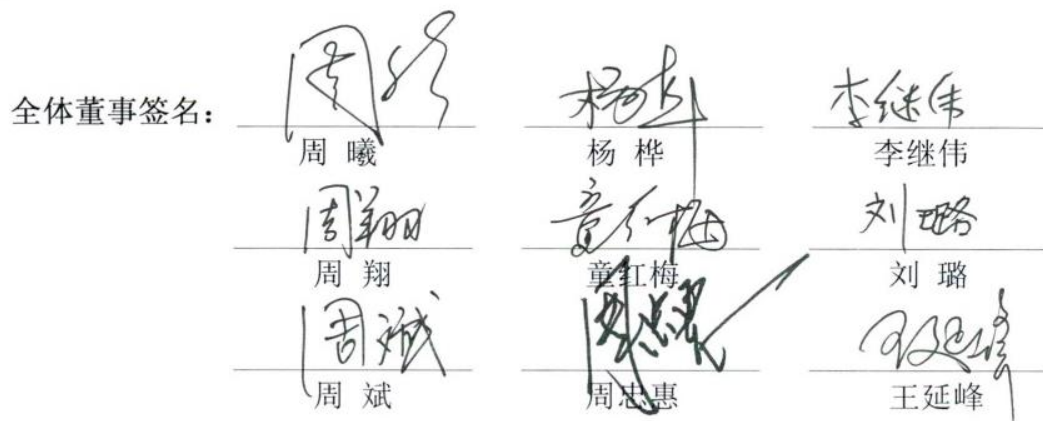 全体董事签名：
周曦 杨桦 李继伟
周 曦 杨 桦 李继伟
周翔 童红梅 刘璐
周 翔 童红梅 刘 璐
周斌 周忠惠 王延峰
周 斌 周忠惠 王延峰